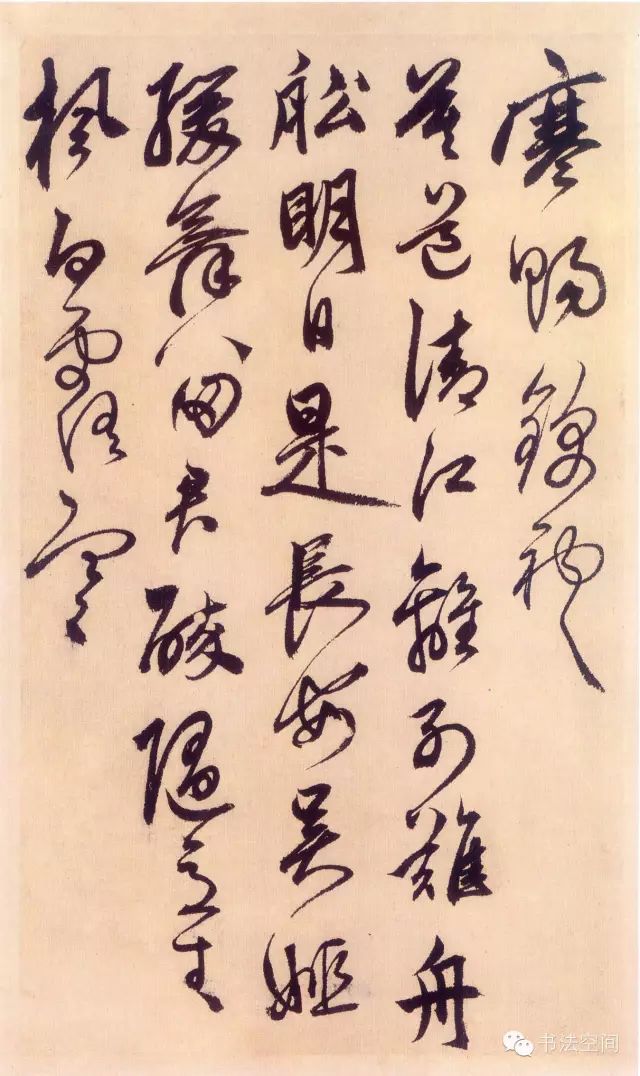 寒賜錦袍
莫道清江離別難舟
船明日是長安吳姬
緩舞留君醉隨意青
楓白露寒
书法空间